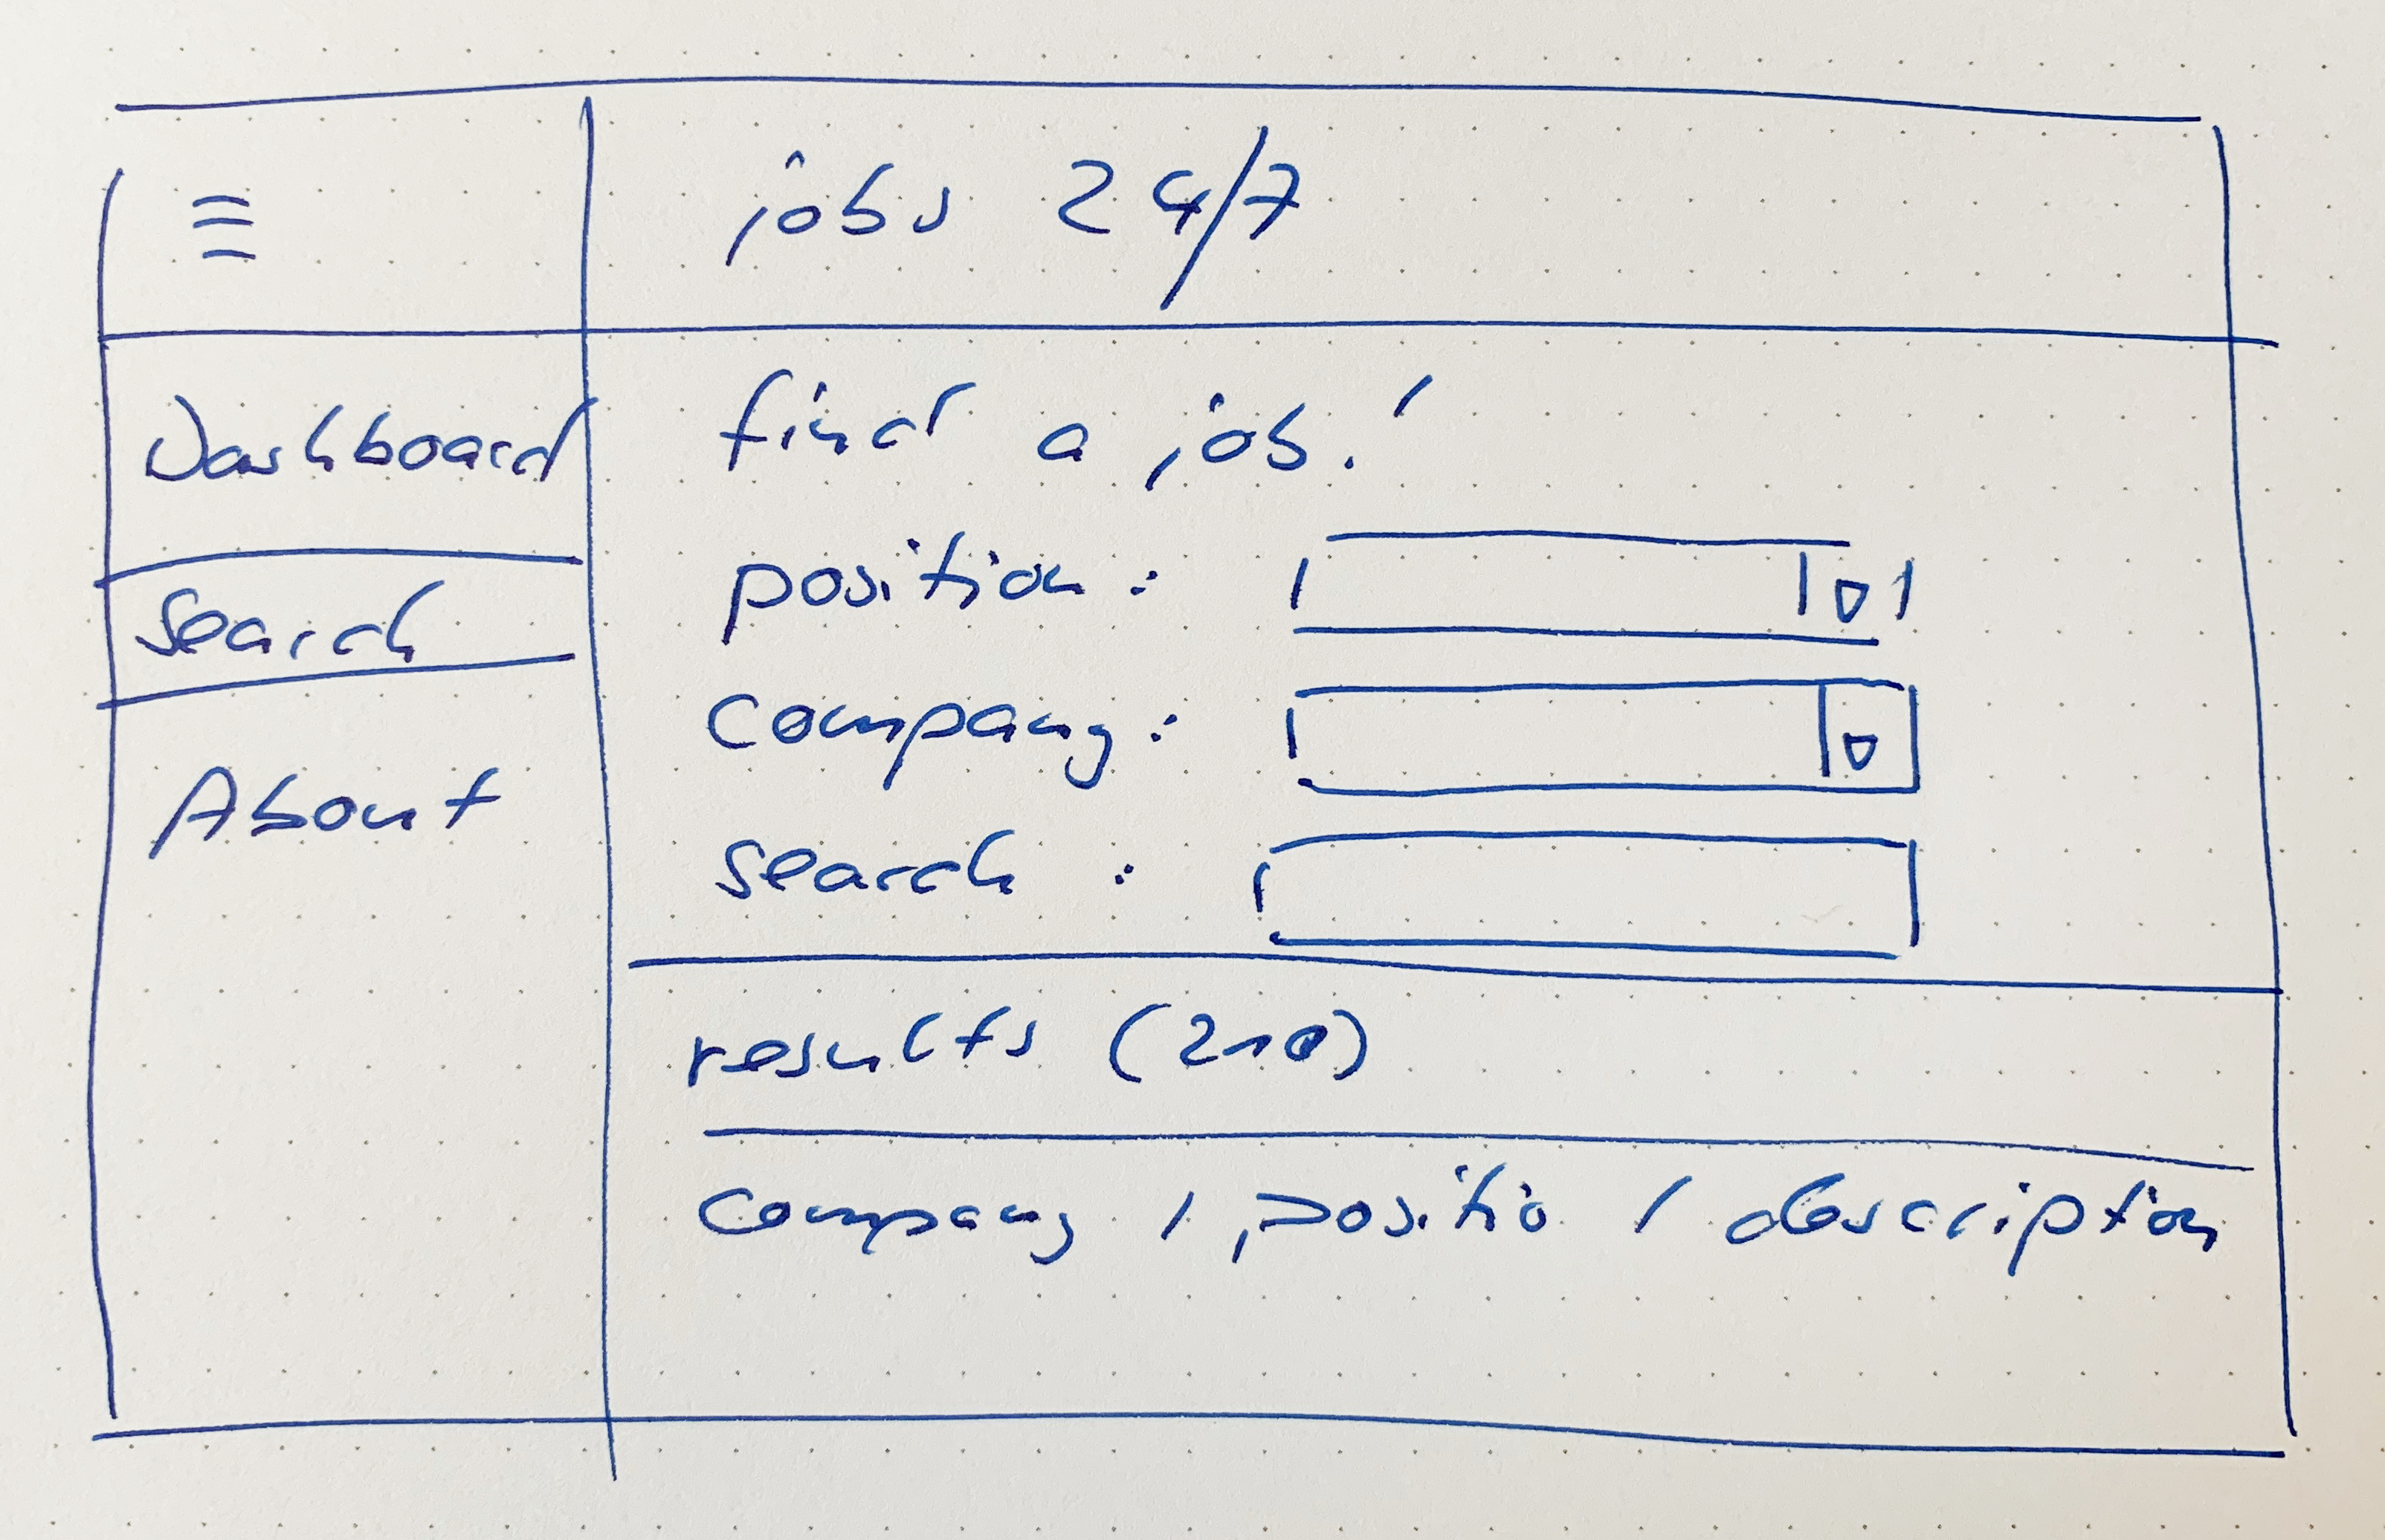 ≡
jobs 24/7
Dashboard
Search
About
find a job!
position:
company:
search:
results (210)
company / positio / description